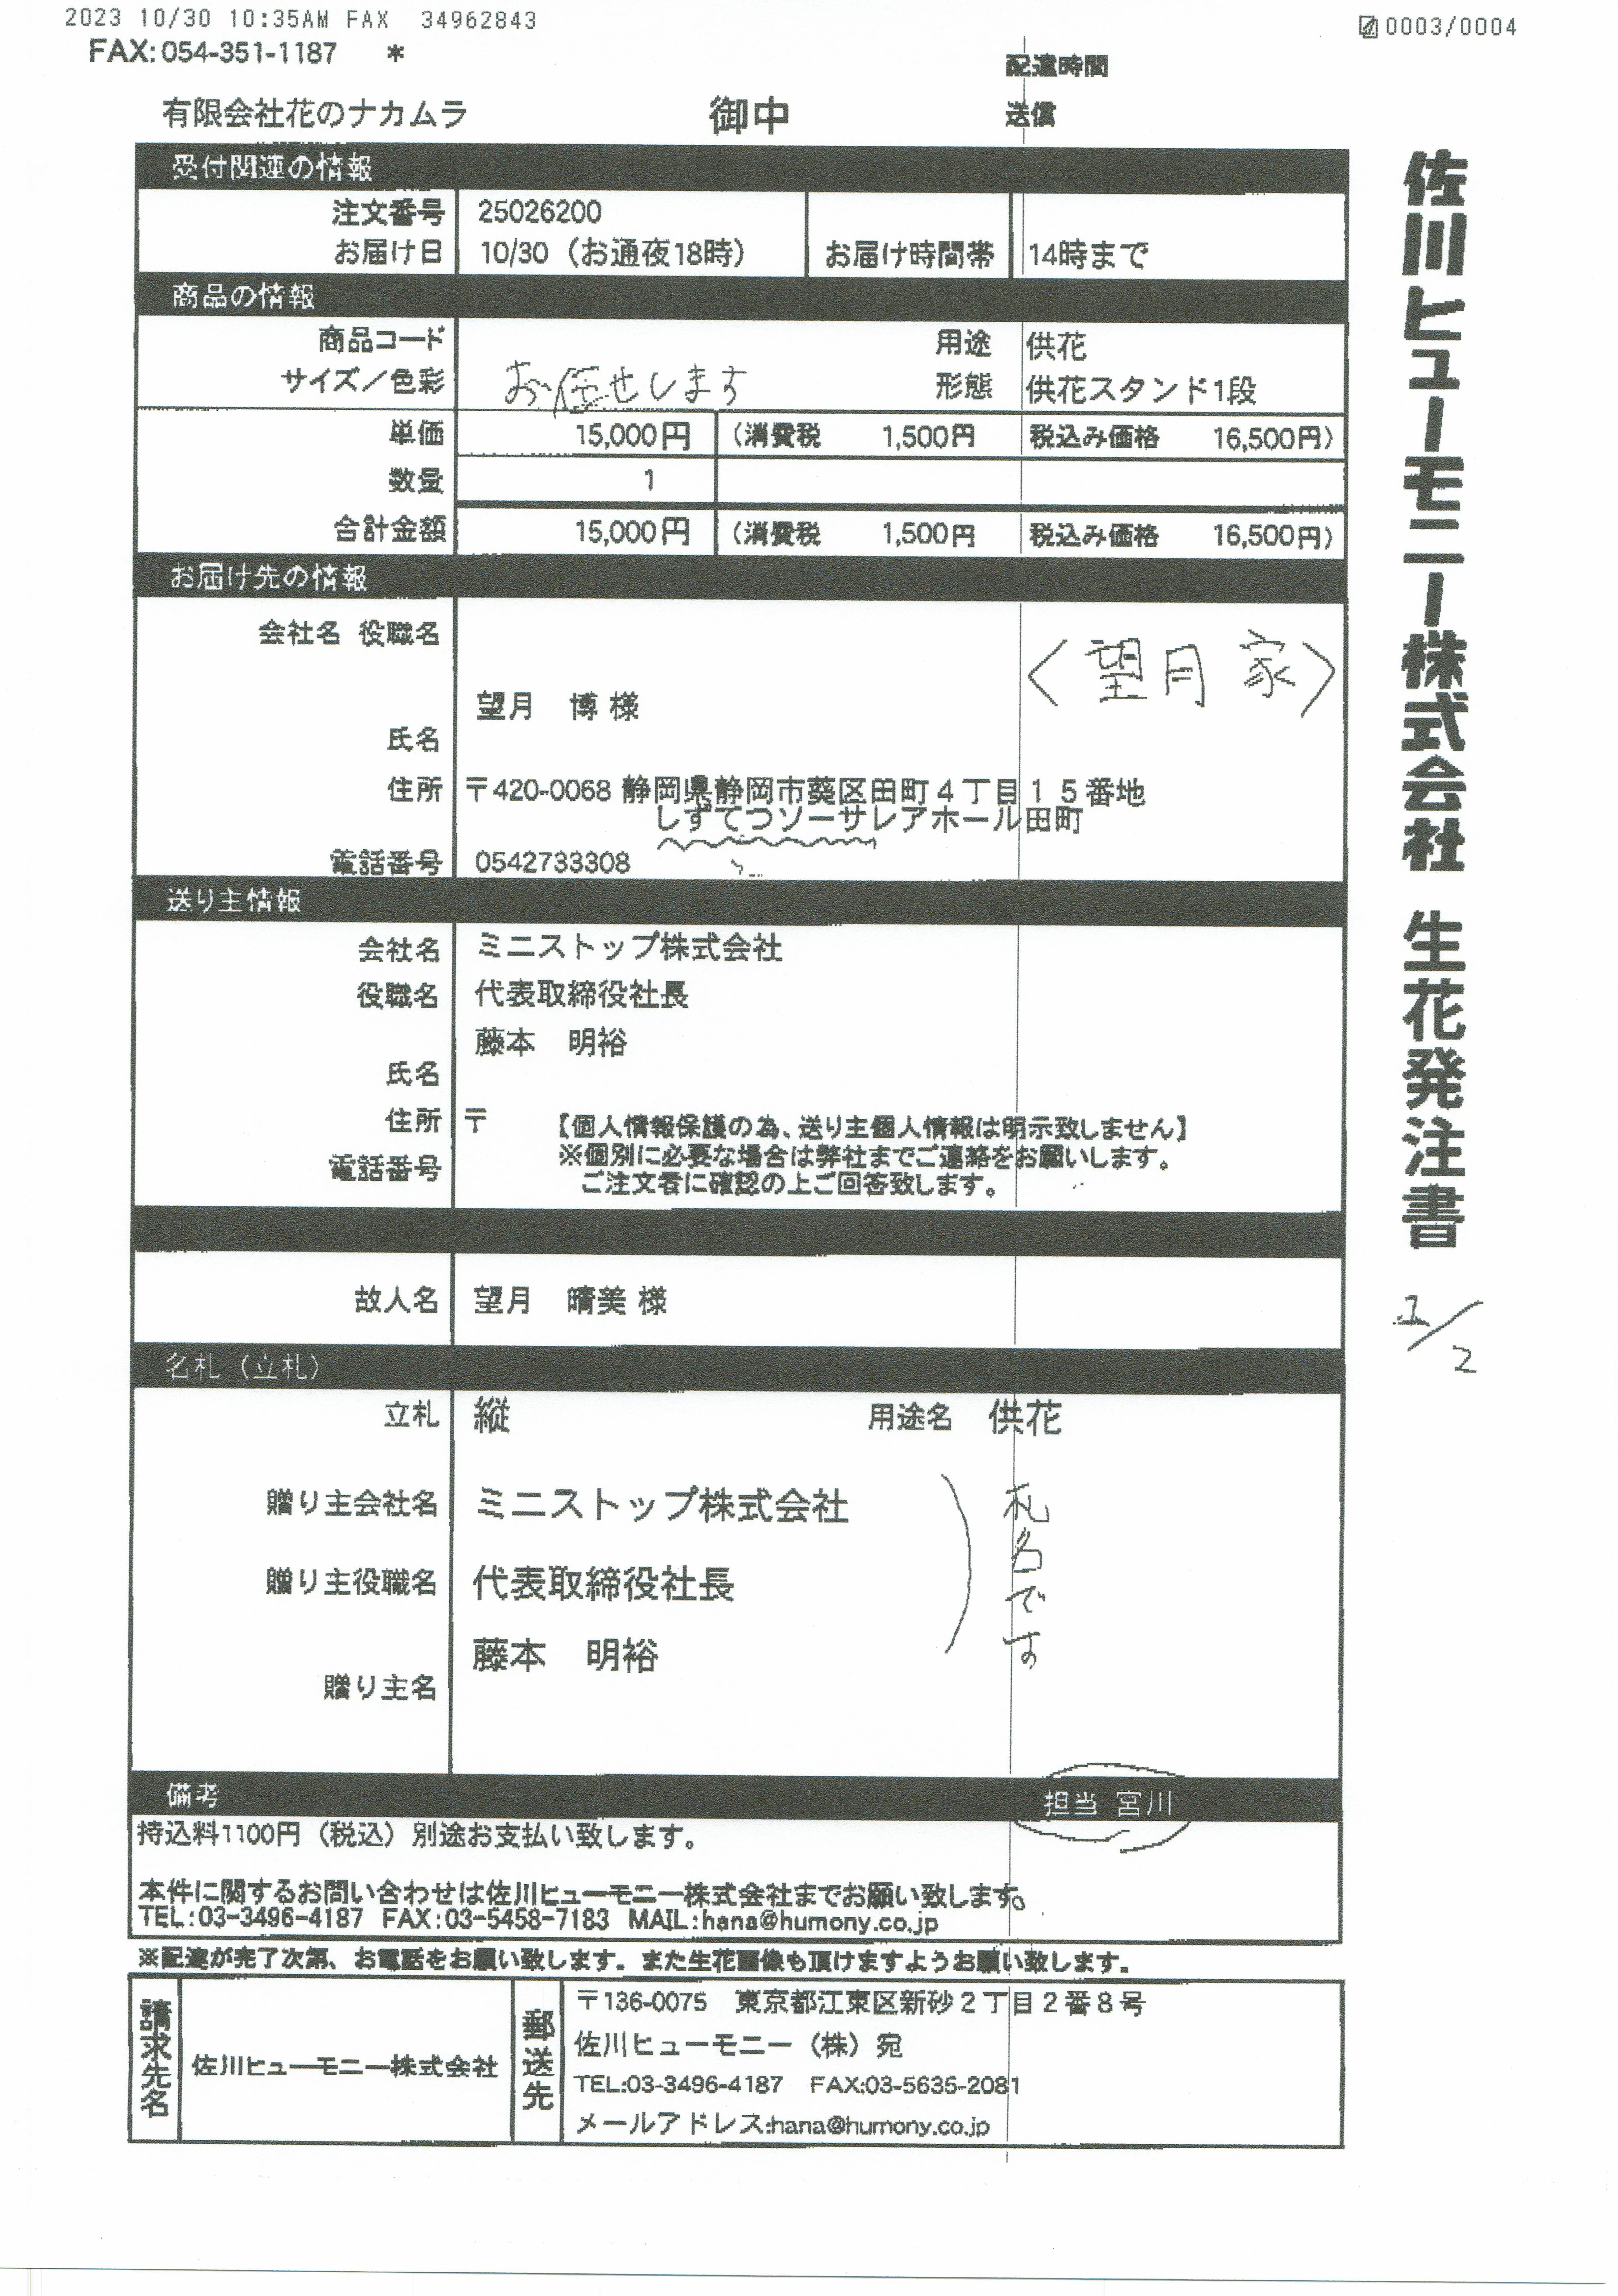 2023 10/30 10:35AM FAX 34962843
0003/0004
FAX:054-351-1187 *
配達時間
有限会社花のナカムラ 御中 送信
佐川ヒューモニー株式会社 生花発注書
1/2
受付関連の情報
注文番号 25026200
お届け日 10/30（お通夜18時） お届け時間帯 14時まで
商品の情報
商品コード 用途 供花
サイズ／色彩 お任せします 形態 供花スタンド1段
単価 15,000円 （消費税 1,500円 税込み価格 16,500円）
数量 1
合計金額 15,000円 （消費税 1,500円 税込み価格 16,500円）
お届け先の情報
会社名 役職名
〈望月家〉
望月 博 様
氏名
住所 〒420-0068 静岡県静岡市葵区田町４丁目１５番地
しずてつソーサレアホール田町
電話番号 0542733308
送り主情報
会社名 ミニストップ株式会社
役職名 代表取締役社長
藤本 明裕
氏名
住所 〒 【個人情報保護の為、送り主個人情報は明示致しません】
※個別に必要な場合は弊社までご連絡をお願いします。
電話番号
ご注文者に確認の上ご回答致します。
故人名 望月 晴美 様
名札（立札）
立札 縦 用途名 供花
贈り主会社名 ミニストップ株式会社
贈り主役職名 代表取締役社長
藤本 明裕
贈り主名
札名です
備考 担当 宮川
持込料1100円（税込）別途お支払い致します。
本件に関するお問い合わせは佐川ヒューモニー株式会社までお願い致します。
TEL:03-3496-4187 FAX:03-5458-7183 MAIL:hana@humony.co.jp
※配達が完了次第、お電話をお願い致します。また生花画像も頂けますようお願い致します。
請求先名 佐川ヒューモニー株式会社
郵送先
〒136-0075 東京都江東区新砂２丁目２番８号
佐川ヒューモニー（株）宛
TEL:03-3496-4187 FAX:03-5635-2081
メールアドレス:hana@humony.co.jp